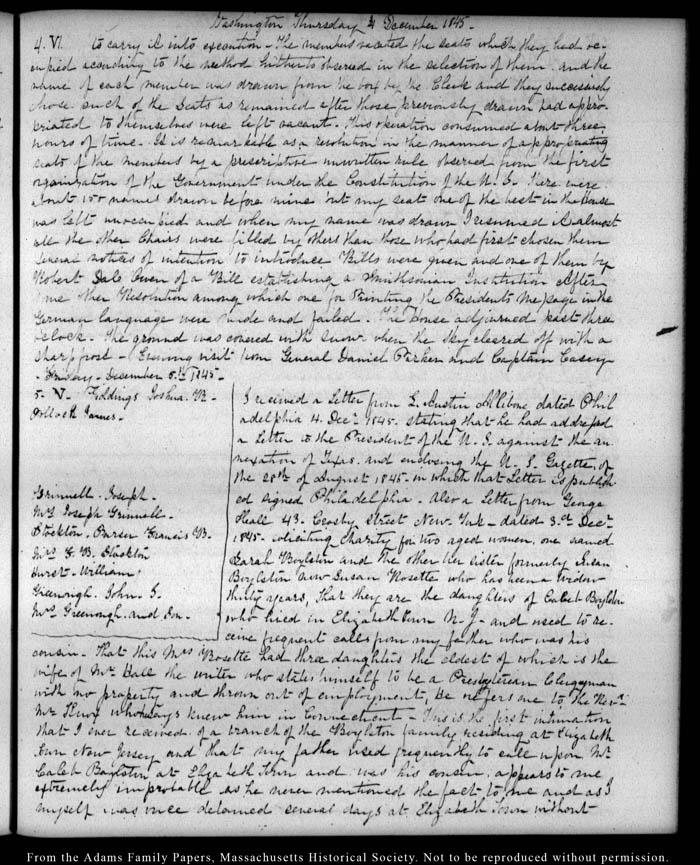 Washington Thursday 4 December 1845.
4. VI. to carry it into execution - The members vacated the seats which they had oc-
cupied according to the method hitherto observed in the selection of them. and the
name of each member was drawn from the box by the Clerk and they successively
chose such of the Seats as remained after those previously drawn had appro-
priated to themselves were left vacant. This operation consumed about three
hours of time. It is remarkable as a revolution in the manner of appropriating
seats of the members by a prescriptive unwritten rule observed from the first
organization of the Government under the Constitution of the U. S. There were
about 150 names drawn before mine but my seat one of the best in the House
was left unoccupied and when my name was drawn I resumed it almost
all the other Chairs were filled by others than those who had first chosen them
Several notices of intention to introduce Bills were given and one of them by
Robert Dale Owen of a Bill establishing a Smithsonian Institution After
some other Resolution among which one for Printing the Presidents Message in the
German language were made and failed. The House adjourned past three
o'clock. The ground was covered with snow when the sky cleared off with a
sharp frost - Evening visit from General Daniel Parker and Captain Casey
Friday - December 5th 1845 -
5. V. Giddings Joshua. R -
Pollock James -
Grinnell - Joseph -
Mrs Joseph Grinnell -
Stockton, Purser Francis B.
Mrs F. B. Stockton
Hurst - William
Greenough. John. S.
Mrs Greenough. and Son -
I received a Letter from S. Austin Allibone dated Phil
adelphia 4. Decr 1845. stating that he had addressed
a Letter to the President of the U. S. against the an-
nexation of Texas. and enclosing the U. S. Gazette, of
the 28th of August 1845. in which that Letter is publish-
ed signed Philadelphia. Also a Letter from George
Hall 43. Crosby Street New York - dated 3d Decr
1845. soliciting charity for two aged women, one named
Sarah Boylston and the other her sister formerly Susan
Boylston now Susan Rosette who has been a widow
thirty years, That they are the daughters of Caleb Boylston
who lived in Elizabeth Town N. J. and used to re-
ceive frequent calls from my father who was his
cousin - That this Mrs Rosette had three daughters the eldest of which is the
wife of Mr Hall the writer who states himself to be a Presbyterian Clergyman
with no property and thrown out of employment, he refers me to the Revd
Mr who says knew him in Connecticut - This is the first intimation
that I ever received of a branch of the Boylston family residing at Elizabeth
Town New Jersey and that my father used frequently to call upon Mr
Caleb Boylston at Elizabeth Town and was his cousin, appears to me
extremely improbable as he never mentioned the fact to me and as I
myself was once detained several days at Elizabeth Town without
From the Adams Family Papers, Massachusetts Historical Society. Not to be reproduced without permission.